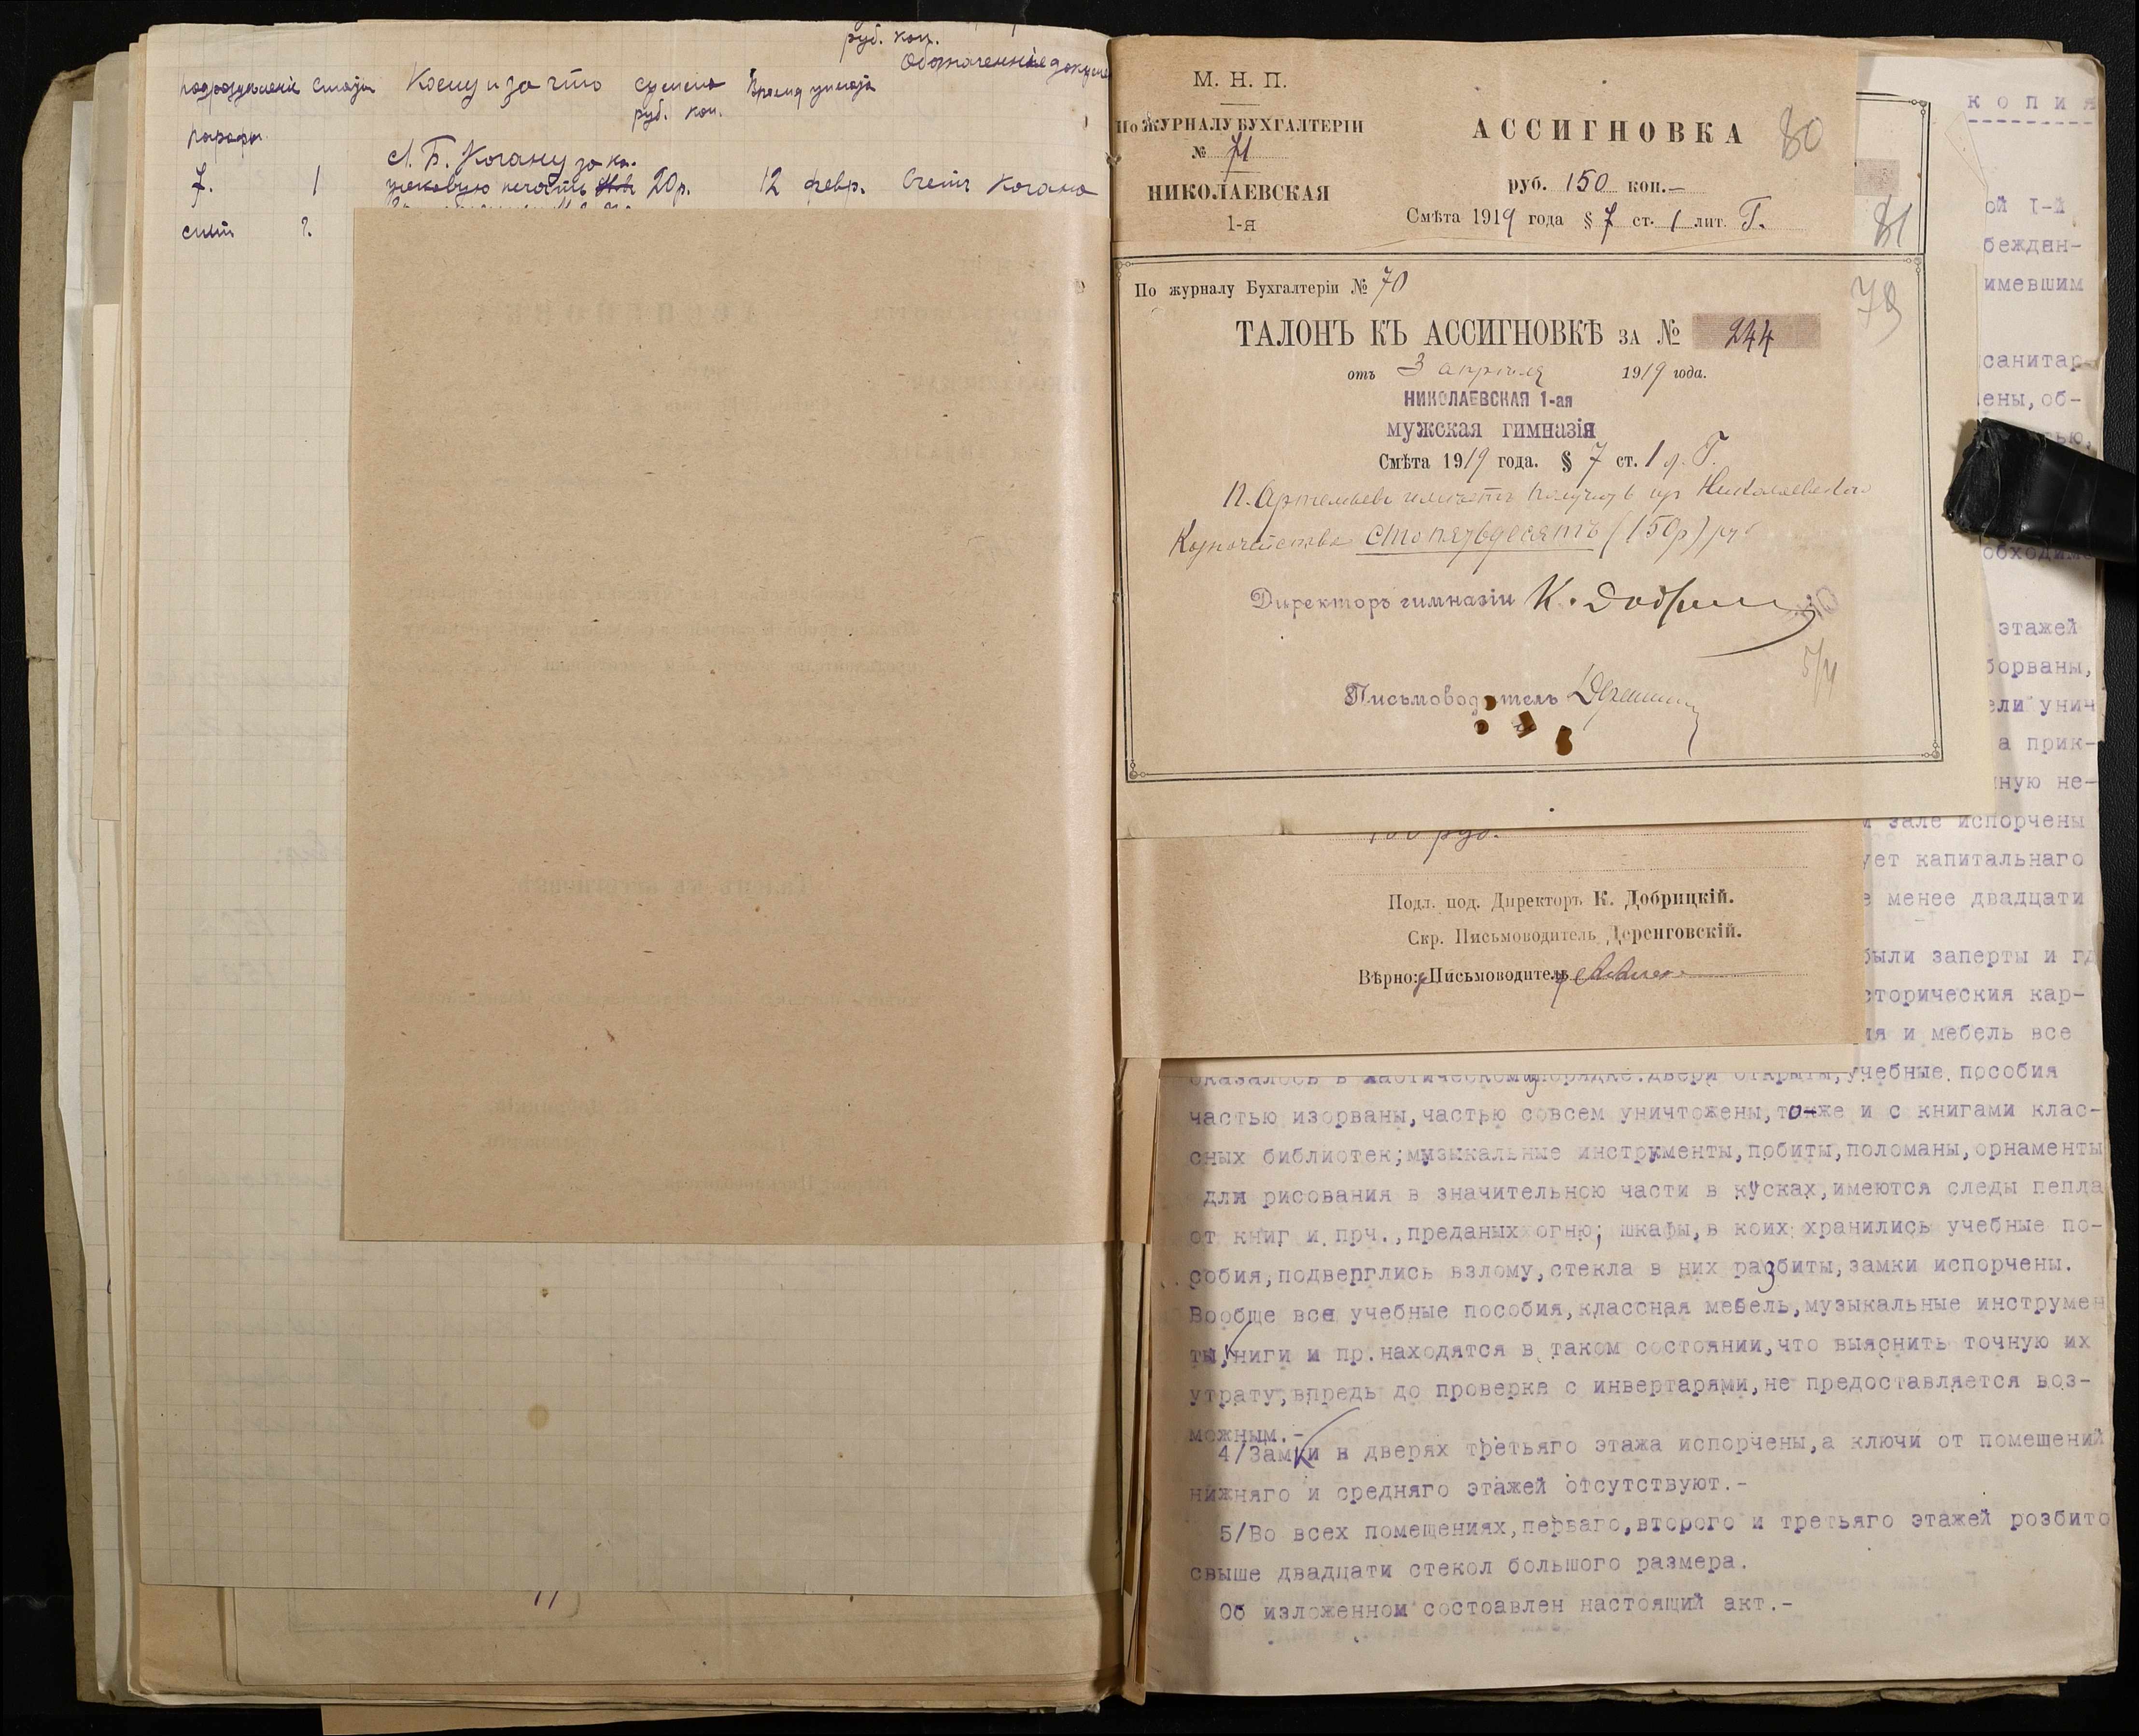 руб. коп.
Обозначение докуме
подразделенiе статьи Кому и за что сумма Время уплаты
руб. коп.
параграф.
Л. Б. Когану за ка-
7. 1 учуковую печать 20 р. 12 февр. Счетъ Когана
смѣт ?.
М. Н. П.
По ЖУРНАЛУ БУХГАЛТЕРIИ
№ 71
НИКОЛАЕВСКАЯ
1-я
АССИГНОВКА 80
руб. 150 коп.—
Смѣта 1919 года § 7 ст. 1 лит. Г.
81
По журналу Бухгалтерiи № 70
79
ТАЛОНЪ КЪ АССИГНОВКѢ ЗА № 244
отъ 3 апрѣля 1919 года.
НИКОЛАЕВСКАЯ 1-ая
мужская гимназiя
Смѣта 1919 года. § 7 ст. 1 Г.
П. Артемьевъ имѣетъ получить из Николаевскаго
Казначейства сто пятьдесятъ (150р) руб
Директоръ гимназiи К. Добрицкiй
5/IV
Письмоводитель
100 руб.
Подл. под. Директоръ К. Добрицкiй.
Скр. Письмоводитель Деренговскiй.
Вѣрно: Письмоводитель
копия
ой I-й
бежден-
имевшим
санитар-
ены,об-
тью,
обходимо
этажей
борваны,
ели унич
а прик-
ную не-
и зале испорчены
ует капитальнаго
е менее двадцати
были заперты и гд
сторическия кар-
ия и мебель все
оказалось в хаотическом порядке.Двери открыты,учебные пособия
частью изорваны,частью совсем уничтожены,тоже и с книгами клас-
сных библиотек;музыкальные инструменты,побиты,поломаны,орнаменты
для рисования в значительною части в кусках,имеются следы пепла
от книг и прч.,преданых огню; шкафы,в коих хранились учебные по-
собия,подверглись взлому,стекла в них разбиты,замки испорчены.
Вообще все учебные пособия,классная мебель,музыкальные инструмен
ты,книги и пр.находятся в таком состоянии,что выяснить точную их
утрату,впредь до проверка с инвертарями,не предоставляется воз-
можным.-
4/Замки в дверях третьяго этажа испорчены,а ключи от помещений
нижняго и средняго этажей отсутствуют.-
5/Во всех помещениях,перваго,второго и третьяго этажей розбито
свыше двадцати стекол большого размера.
Об изложенном состоавлен настоящий акт.-